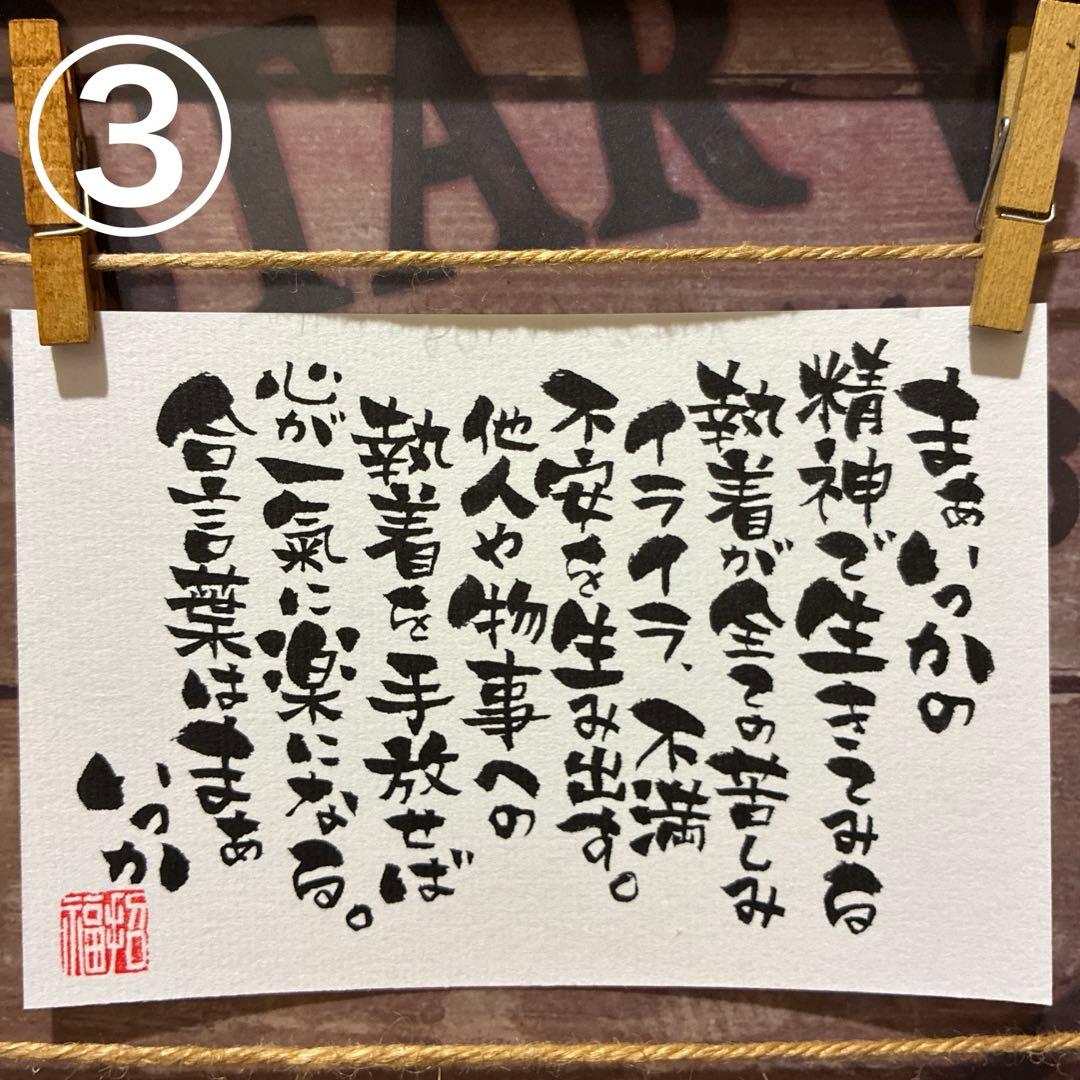 ③
STAR W
まぁいっかの
精神で生きてみる
執着が全ての苦しみ
イライラ、不満
不安を生み出す。
他人や物事への
執着を手放せば
心が一氣に楽になる。
合言葉はまぁ
いっか
招福